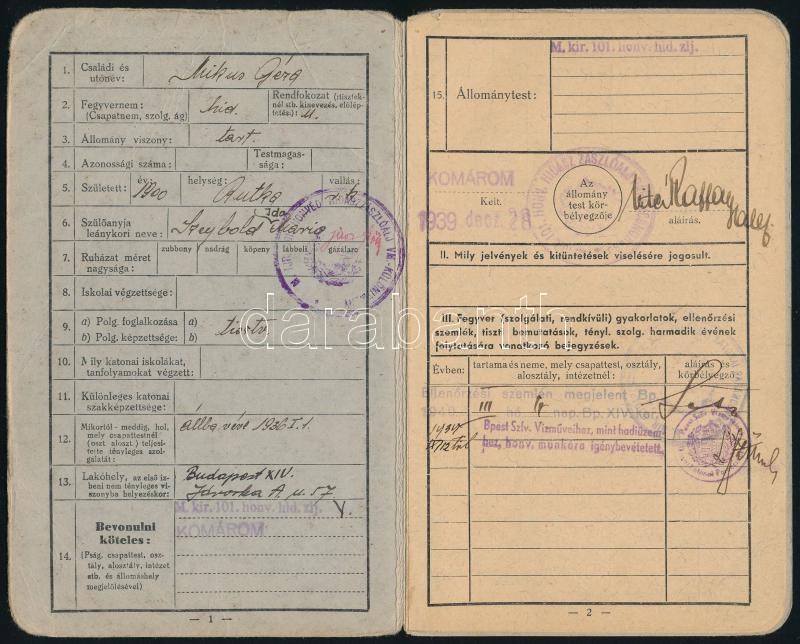 1. Családi és
utónév:
Mikus Géza
2. Fegyvernem:
(Csapatnem, szolg. ág)
hid.
Rendfokozat (tiszteknél
stb. kinevezés, előléptetés:)
3. Állomány viszony:
tart.
4. Azonossági száma:
Testmagassága:
5. Született:
év: 1900
helység: Rutka
vallás: r. k.
6. Szülőanyja
leánykori neve:
Szeybold Mária
Ida
7. Ruházat méret
nagysága:
zubbony nadrág köpeny lábbeli gázálarc
8. Iskolai végzettsége:
9. a) Polg. foglalkozása
b) Polg. képzettsége:
a)
b)
tisztv.
10. Mily katonai iskolákat,
tanfolyamokat végzett:
11. Különleges katonai
szakképzettsége:
12. Mikortól-meddig, hol,
mely csapattestnél
(oszt. aloszt.) teljesítette
tényleges szolgálatát:
állba véve 1936. I. 1.
13. Lakóhely, az első ízbeni
nem tényleges viszonyba
helyezéskor:
Budapest XIV.
Jávorka A. u. 57
M. kir. 101. honv. hid. zlj. V.
KOMÁROM
14. Bevonulni
köteles:
(Pság, csapattest, osztály,
alosztály, intézet
stb. és állomáshely
megjelölésével)
— 1 —
M. kir. 101. honv. hid. zlj.
15. Állománytest:
KOMÁROM
1939 dec. 28
Kelt.
Az
állomány
test körbélyegzője
vitéz
aláírás.
II. Mily jelvények és kitüntetések viselésére jogosult.
III. Fegyver (szolgálati, rendkívüli) gyakorlatok, ellenőrzési
szemlék, tiszti bemutatások, tényl. szolg. harmadik évének
folytatására vonatkozó bejegyzések.
Évben:
tartama és neme, mely csapattest, osztály,
alosztály, intézetnél:
aláírás és
körbélyegző:
Ellenőrzési szemlén megjelent Bp.
1940 III hó nap. Bp. XIV. ker.
Bpest Szfv. Vízműveihez, mint hadiüzemhez,
honv. munkára igénybevétetett.
— 2 —
darabanth